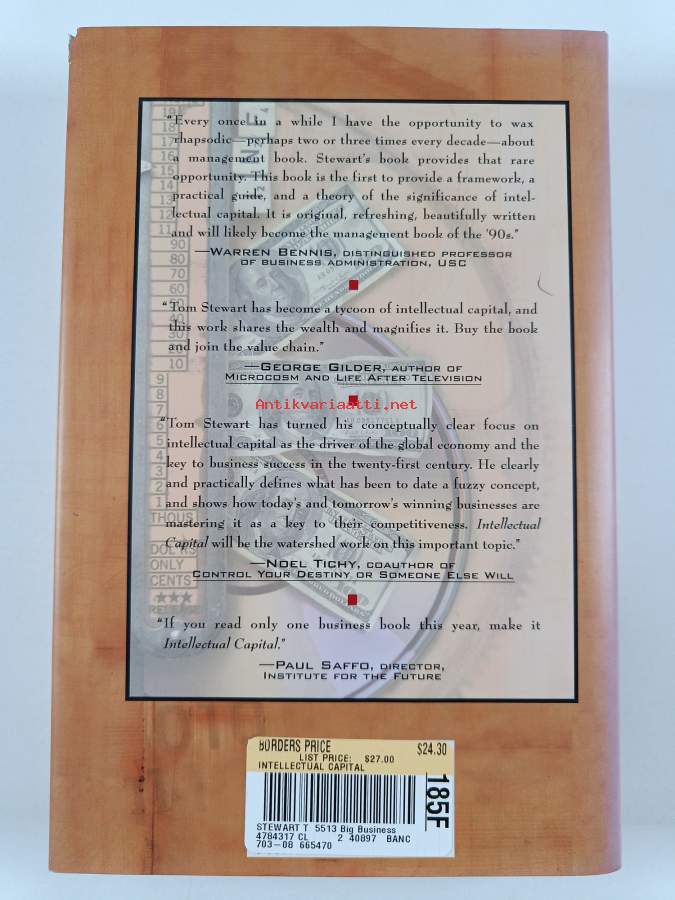 "Every once in a while I have the opportunity to wax
rhapsodic—perhaps two or three times every decade—about
a management book. Stewart's book provides that rare
opportunity. This book is the first to provide a framework, a
practical guide, and a theory of the significance of intel-
lectual capital. It is original, refreshing, beautifully written
and will likely become the management book of the '90s."
—WARREN BENNIS, DISTINGUISHED PROFESSOR
OF BUSINESS ADMINISTRATION, USC
"Tom Stewart has become a tycoon of intellectual capital, and
this work shares the wealth and magnifies it. Buy the book
and join the value chain."
—GEORGE GILDER, AUTHOR OF
MICROCOSM AND LIFE AFTER TELEVISION
Antikvariaatti.net
"Tom Stewart has turned his conceptually clear focus on
intellectual capital as the driver of the global economy and the
key to business success in the twenty-first century. He clearly
and practically defines what has been to date a fuzzy concept,
and shows how today's and tomorrow's winning businesses are
mastering it as a key to their competitiveness. Intellectual
Capital will be the watershed work on this important topic."
—NOEL TICHY, COAUTHOR OF
CONTROL YOUR DESTINY OR SOMEONE ELSE WILL
"If you read only one business book this year, make it
Intellectual Capital."
—PAUL SAFFO, DIRECTOR,
INSTITUTE FOR THE FUTURE
18
17
16
15
14
13
12
11
90
80
70
60
40
30
20
10
9
8
7
6
5
4
3
2
1
THOUS
ONLY
CENTS
BORDERS PRICE $24.30
LIST PRICE: $27.00
INTELLECTUAL CAPITAL
185F
STEWART T 5513 Big Business
4784317 CL 2 40897 BANC
703-08 665470